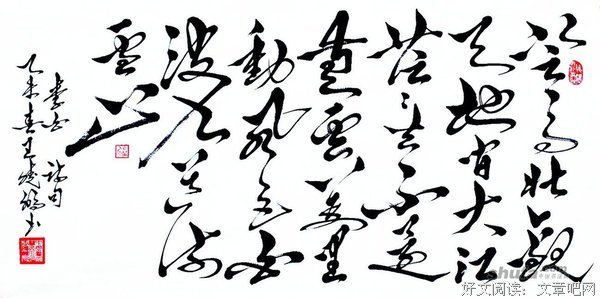 登高壮觀
天地间大江
茫〻去不還
黄雲萬里
動風色白
波九道流
雪山
李白诗句
乙未春王
书
好文阅读：文章吧网